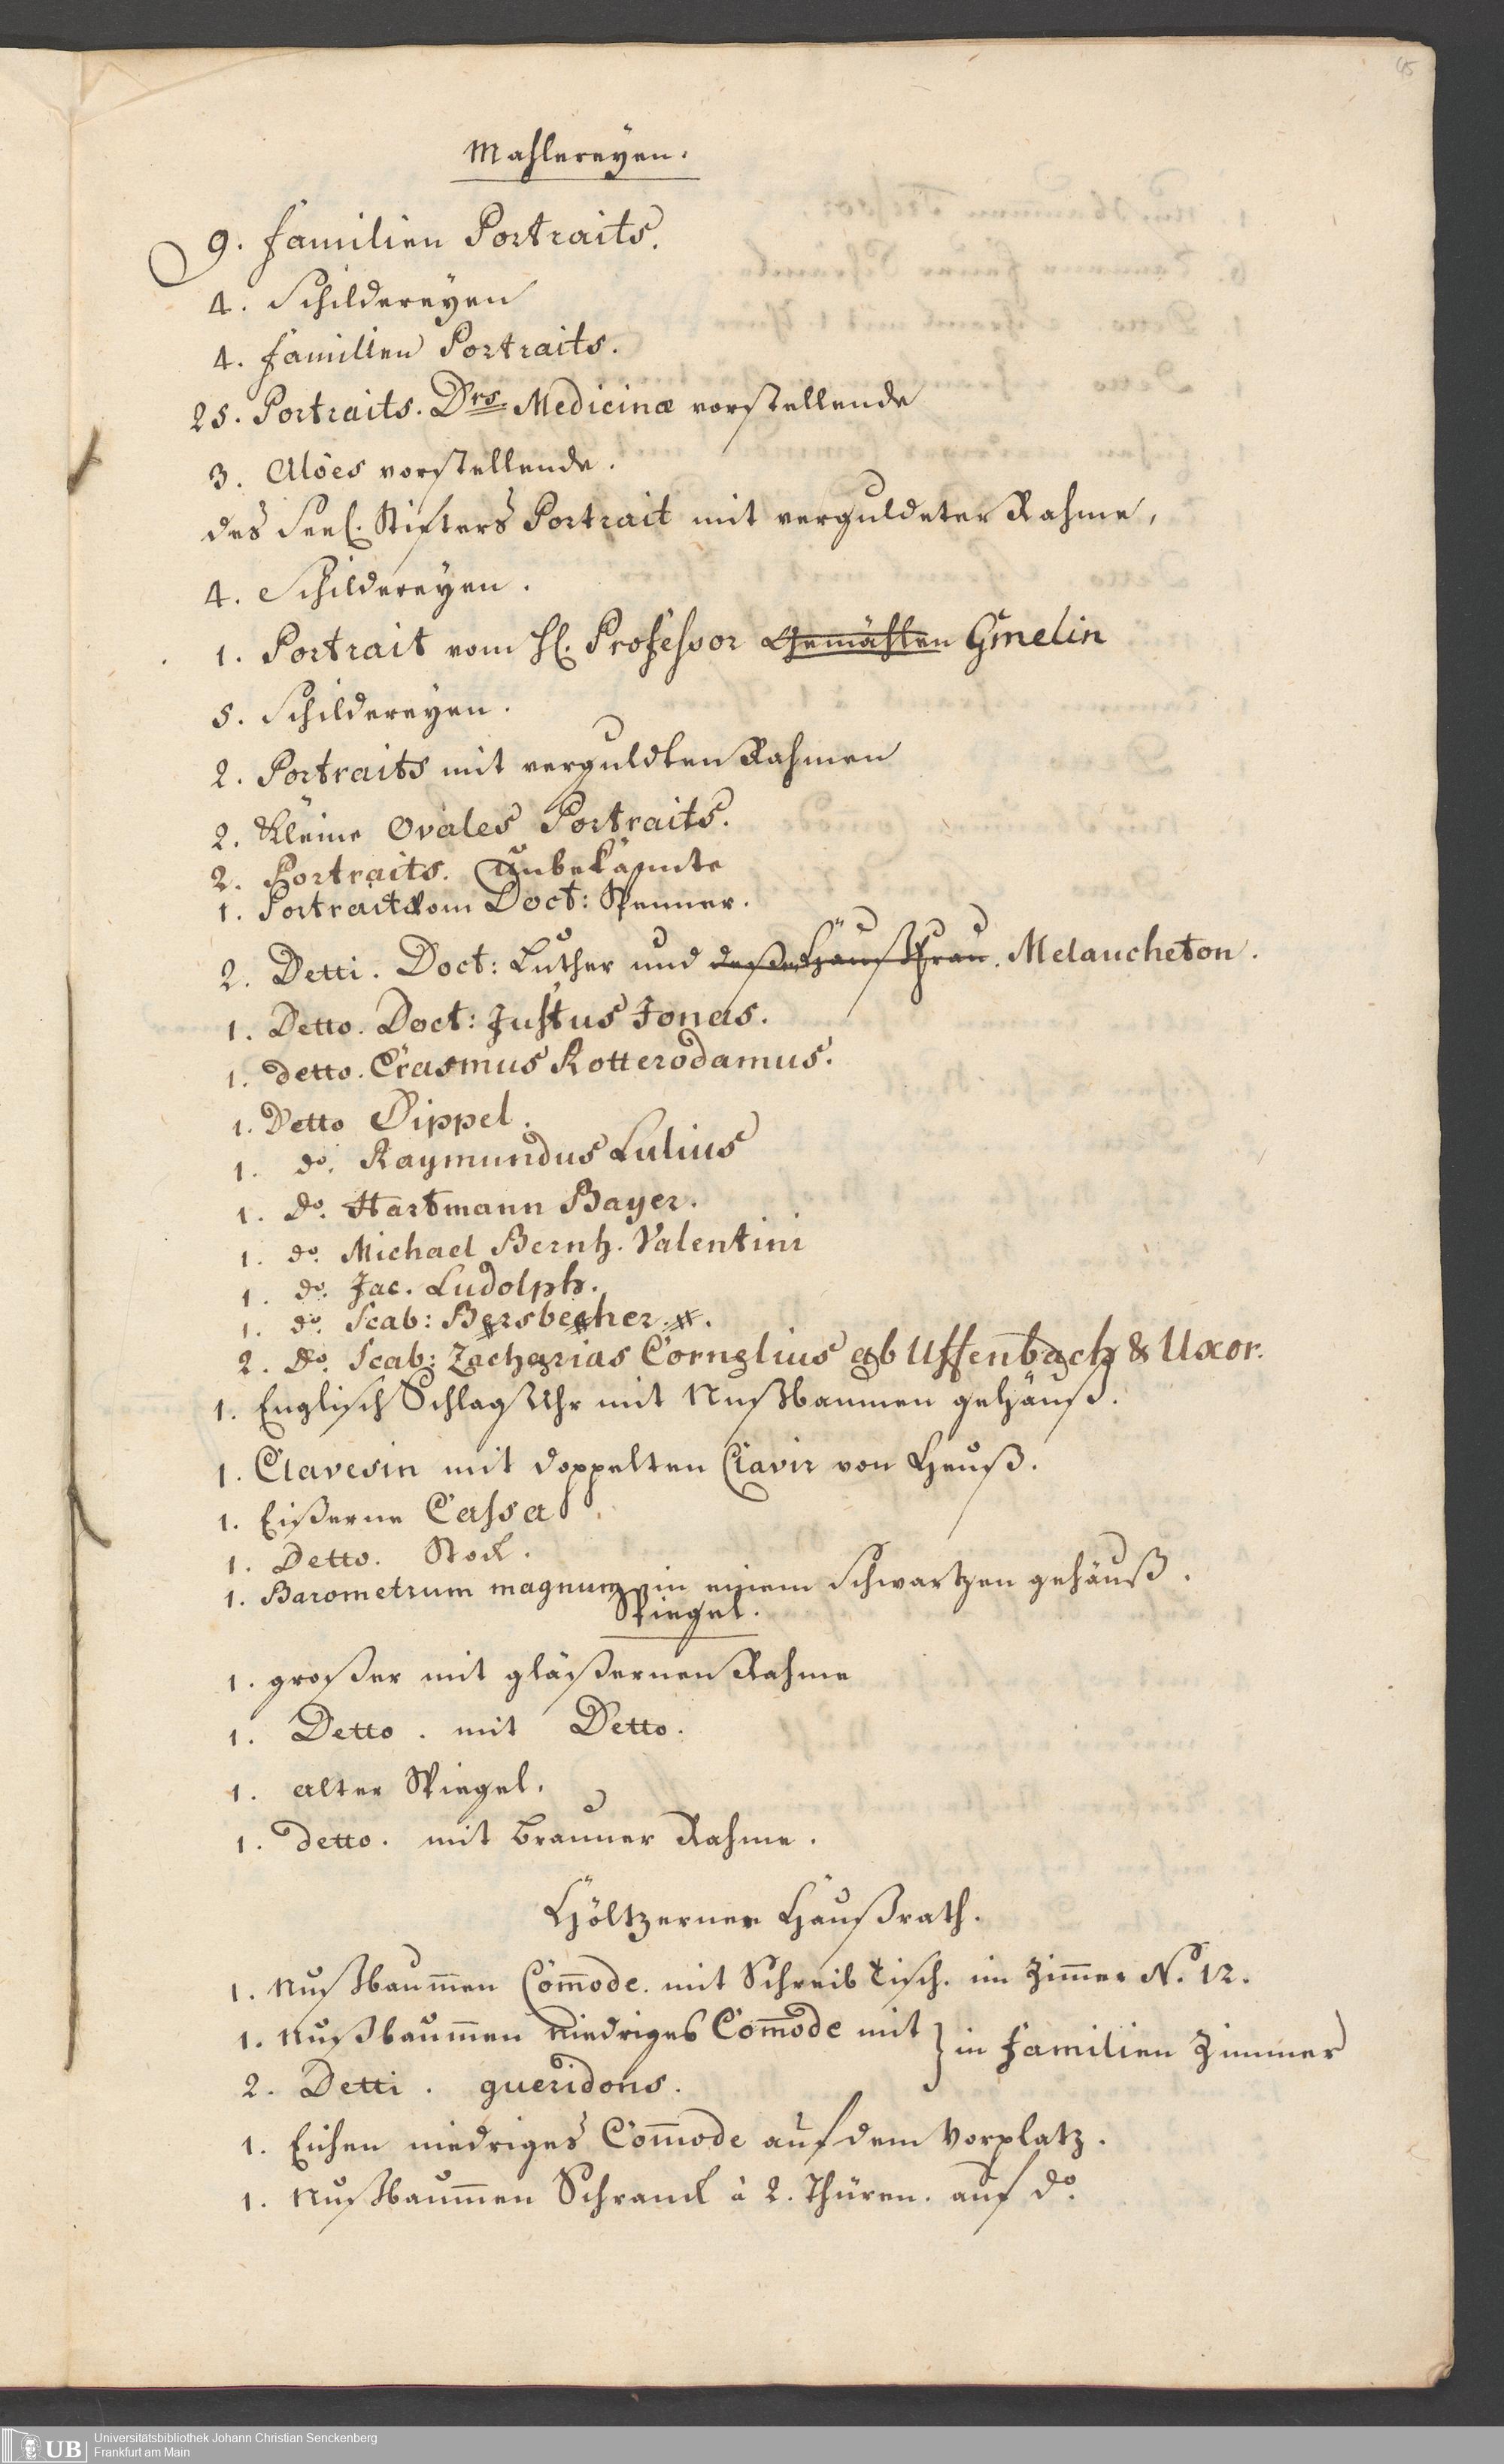 45
Mahlereyen.
9. Familien Portraits.
4. Schildereyen
4. Familien Portraits.
25. Portraits. Drs. Medicinæ vorstellende
3. Aloes vorstellende.
des Seel. Stifters Portrait mit verguldeter Rahme,
4. Schildereyen.
1. Portrait vom H. Professor Gemählen Gmelin
5. Schildereyen.
2. Portraits mit verguldten Rahmen
2. Kleine Ovales Portraits.
2. Portraits. Unbekannte
1. Portrait vom Doct: Spenner.
2. Detti. Doct: Luther und deßen Haußfrau. Melancheton.
1. Detto. Doct: Justus Jonas.
1. detto. Erasmus Rotterodamus.
1. Detto Dippel.
1. do. Raymundus Lulius
1. do. Hartmann Bayer.
1. do. Michael Bernh. Valentini
1. do. Jac. Ludolph.
1. do. Scab: Bersbecher.
2. do. Scab: Zacharias Cornelius ab Uffenbach & Uxor.
1. Englisch Schlag Uhr mit Nußbaumen gehäuß.
1. Clavesin mit doppelten Clavir von Heuß.
1. Eißerne Cassa
1. Detto. Stock.
1. Barometrum magnum in einem schwartzen gehäuß.
Spiegel.
1. großer mit gläßernen Rahme
1. Detto. mit Detto.
1. alter Spiegel.
1. detto. mit brauner Rahme.
Höltzerner Haußrath.
1. Nußbaumen Com̅ode. mit Schreib Tisch. im Zimmer No. 12.
1. Nußbaumen niedriges Com̅ode mit } in Familien Zimmer
2. Detti. gueridons.
1. Eichen niedriges Com̅ode auf dem Vorplatz.
1. Nußbaumen Schranck à 2. Thüren. auf do.
UB
Universitätsbibliothek Johann Christian Senckenberg
Frankfurt am Main